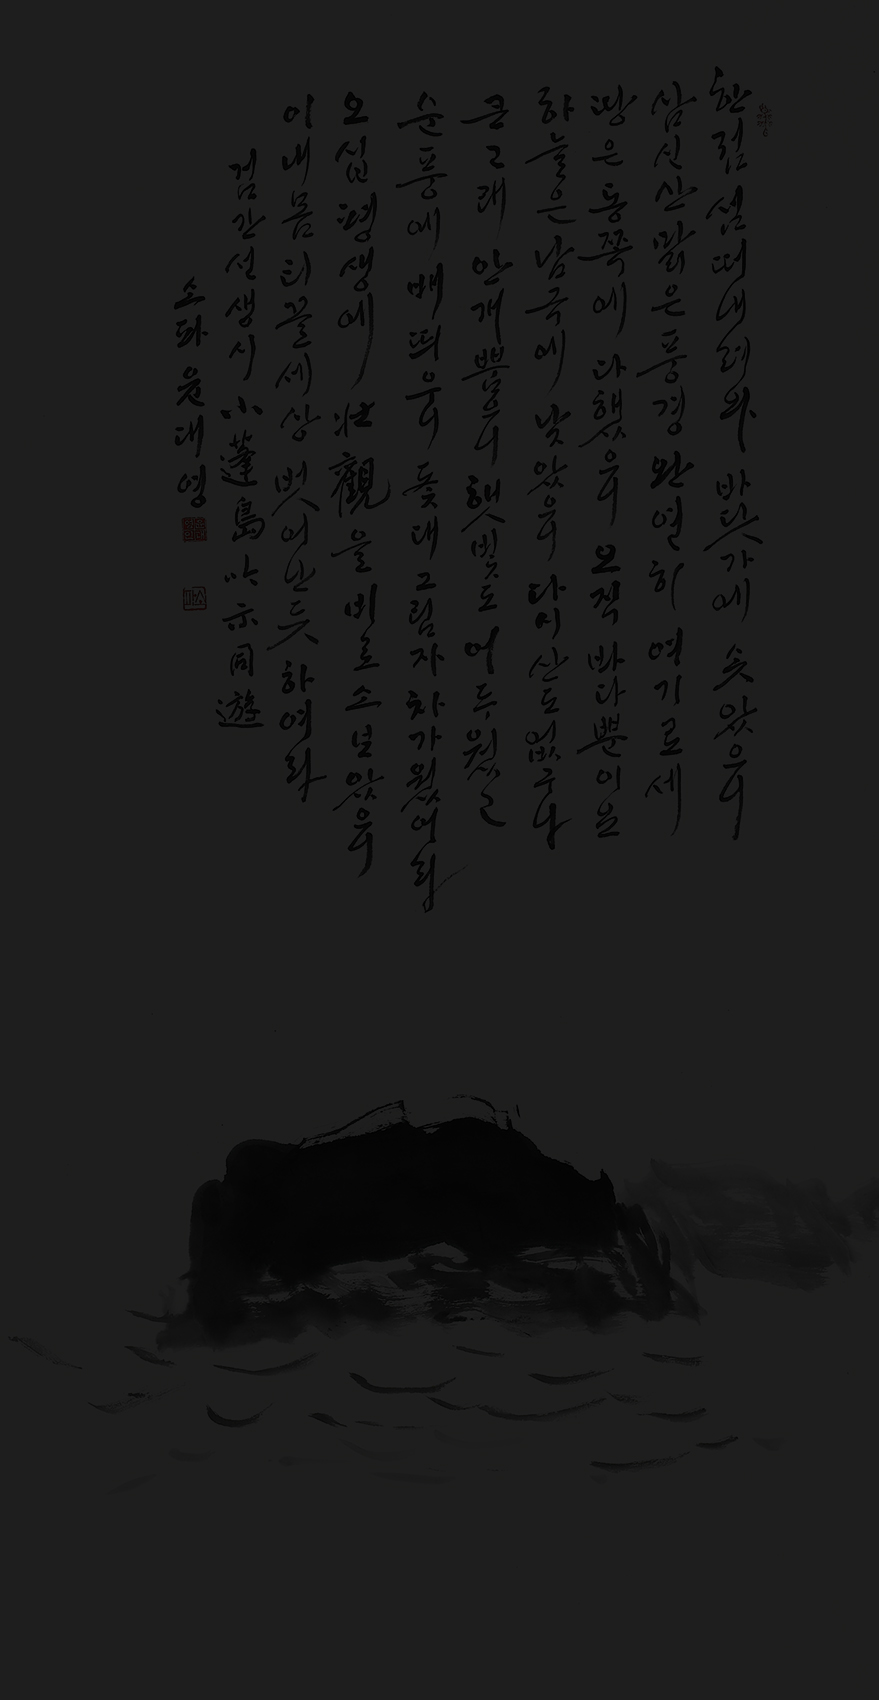 한 점 섬 떠 내려와 바닷가에 솟았으니
삼신산 맑은 풍경 완연히 여기로세
땅은 동쪽에 다했으니 오직 바다뿐이요
하늘은 남국에 낮았으니 다시 산도 없구나
큰 고래 안개 뿜으니 햇빛도 어두웠고
순풍에 배 띄우니 돛대 그림자 차가웠어라
오십 평생에 壯觀을 비로소 보았으니
이내 몸 티끌세상 벗어난 듯 하여라
검간선생시 小蓬島 吟示同遊
소파 윤대영